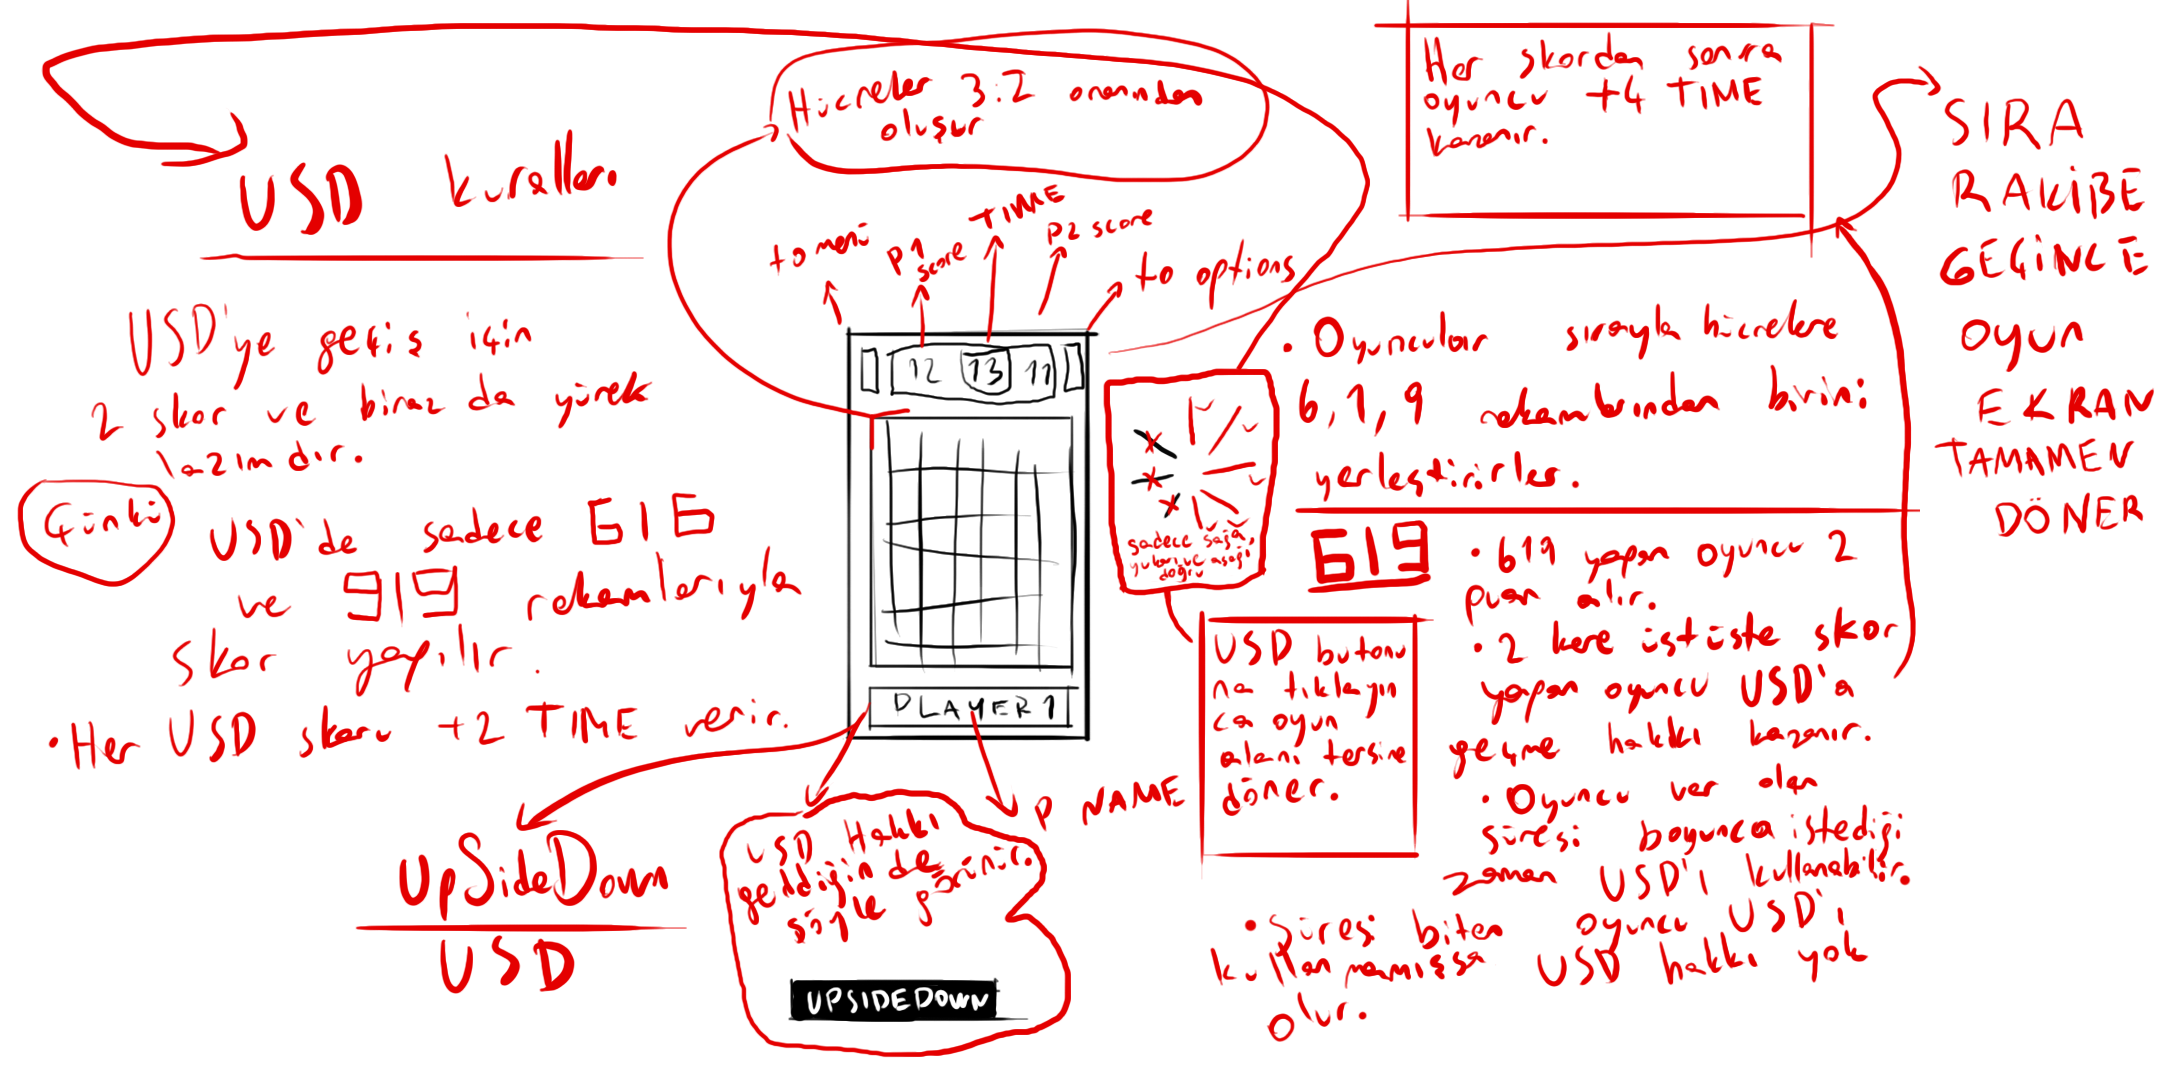 USD kuralları
USD'ye geçiş için
2 skor ve biraz da yürek
lazımdır.
Çünkü
USD'de sadece 616
ve 919 rakamlarıyla
skor yapılır.
•Her USD skoru +2 TIME verir.
UpSideDown
USD
Hücreler 3:2 oranından
oluşur
to menü
P1
score
TIME
P2 score
to options
12 13 11
PLAYER 1
P NAME
USD Hakkı
geldiğinde
şöyle görünür.
UPSIDEDOWN
sadece sağa,
yukarı ve aşağı
doğru
USD butonu
na tıklayın
ca oyun
alanı tersine
döner.
Her skordan sonra
oyuncu +4 TIME
kazanır.
• Oyuncular sırayla hücrelere
6, 1, 9 rakamlarından birini
yerleştirirler.
619
• 619 yapan oyuncu 2
puan alır.
• 2 kere üstüste skor
yapan oyuncu USD'a
geçme hakkı kazanır.
• Oyuncu var olan
süresi boyunca istediği
zaman USD'ı kullanabilir.
• Süresi biten oyuncu USD'ı
kullanmamışsa USD hakkı yok
olur.
SIRA
RAKİBE
GEÇİNCE
OYUN
EKRAN
TAMAMEN
DÖNER